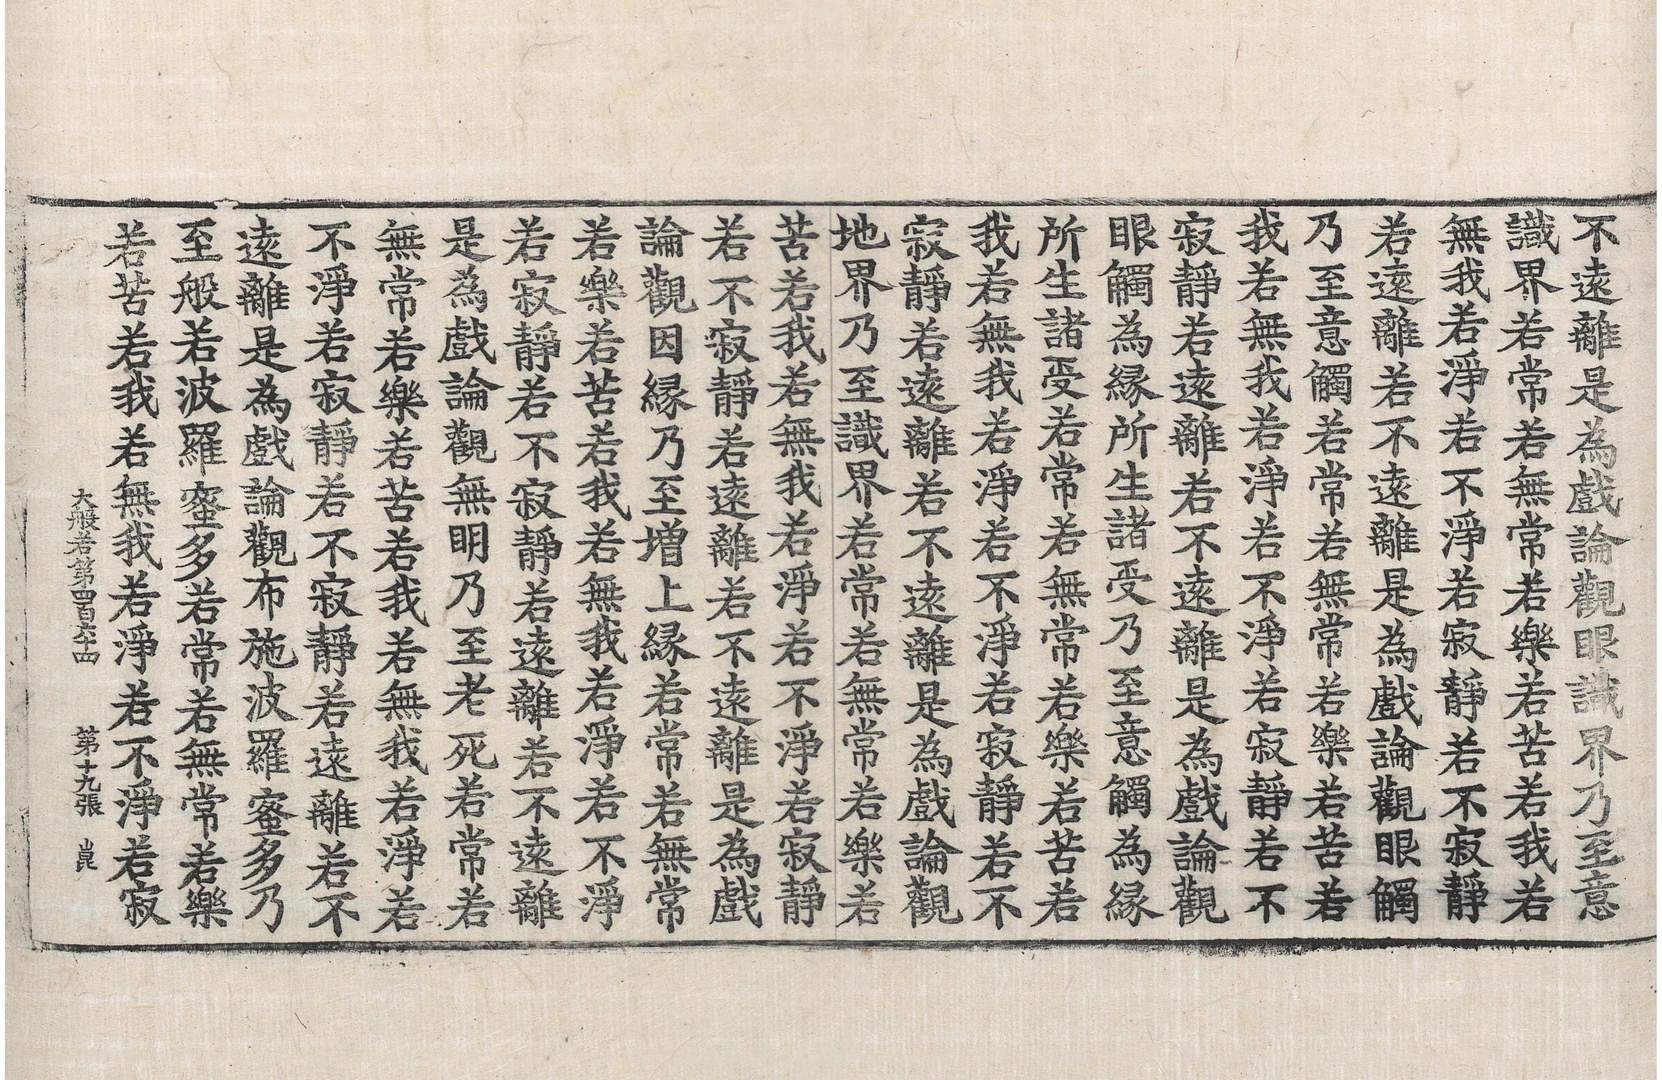 不遠離是為戲論觀眼識界乃至意
識界若常若無常若樂若苦若我若
無我若淨若不淨若寂靜若不寂靜
若遠離若不遠離是為戲論觀眼觸
乃至意觸若常若無常若樂若苦若
我若無我若淨若不淨若寂靜若不
寂靜若遠離若不遠離是為戲論觀
眼觸為縁所生諸受乃至意觸為縁
所生諸受若常若無常若樂若苦若
我若無我若淨若不淨若寂靜若不
寂靜若遠離若不遠離是為戲論觀
地界乃至識界若常若無常若樂若
苦若我若無我若淨若不淨若寂靜
若不寂靜若遠離若不遠離是為戲
論觀因縁乃至增上縁若常若無常
若樂若苦若我若無我若淨若不淨
若寂靜若不寂靜若遠離若不遠離
是為戲論觀無明乃至老死若常若
無常若樂若苦若我若無我若淨若
不淨若寂靜若不寂靜若遠離若不
遠離是為戲論觀布施波羅蜜多乃
至般若波羅蜜多若常若無常若樂
若苦若我若無我若淨若不淨若寂
大般若第四百六十四 第十九張 崑